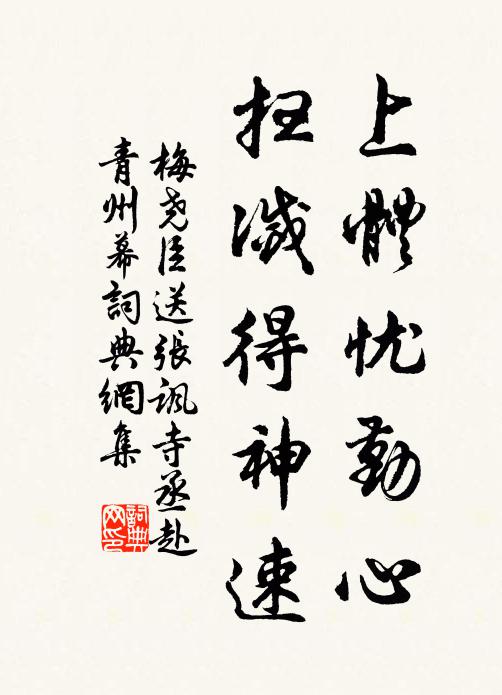 上體忧勤心
扫滅得神速
梅尧臣送張諷寺丞赴
青州幕詞典網集
詞典
网印